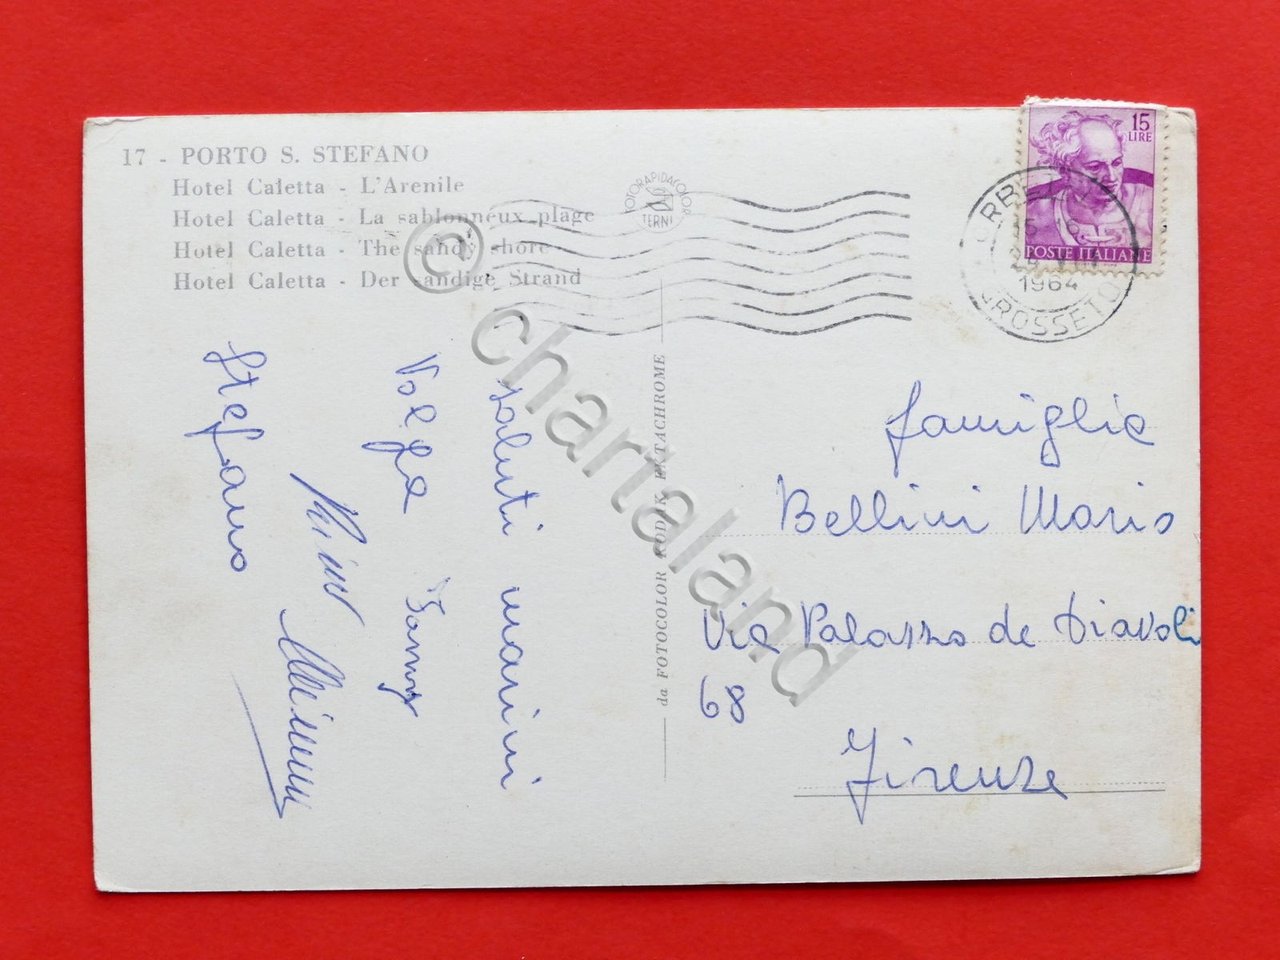 17 - PORTO S. STEFANO
Hotel Caletta - L'Arenile
Hotel Caletta - La sablonneux plage
Hotel Caletta - The sandy shore
Hotel Caletta - Der sandige Strand
FOTORAPIDACOLOR
TERNI
15
LIRE
POSTE ITALIANE
1964
GROSSETO
saluti marini
Volga
Stefano
da FOTOCOLOR KODAK EKTACHROME
famiglia
Bellini Mario
Via Palazzo de Diavoli
68
Firenze
© chartaland